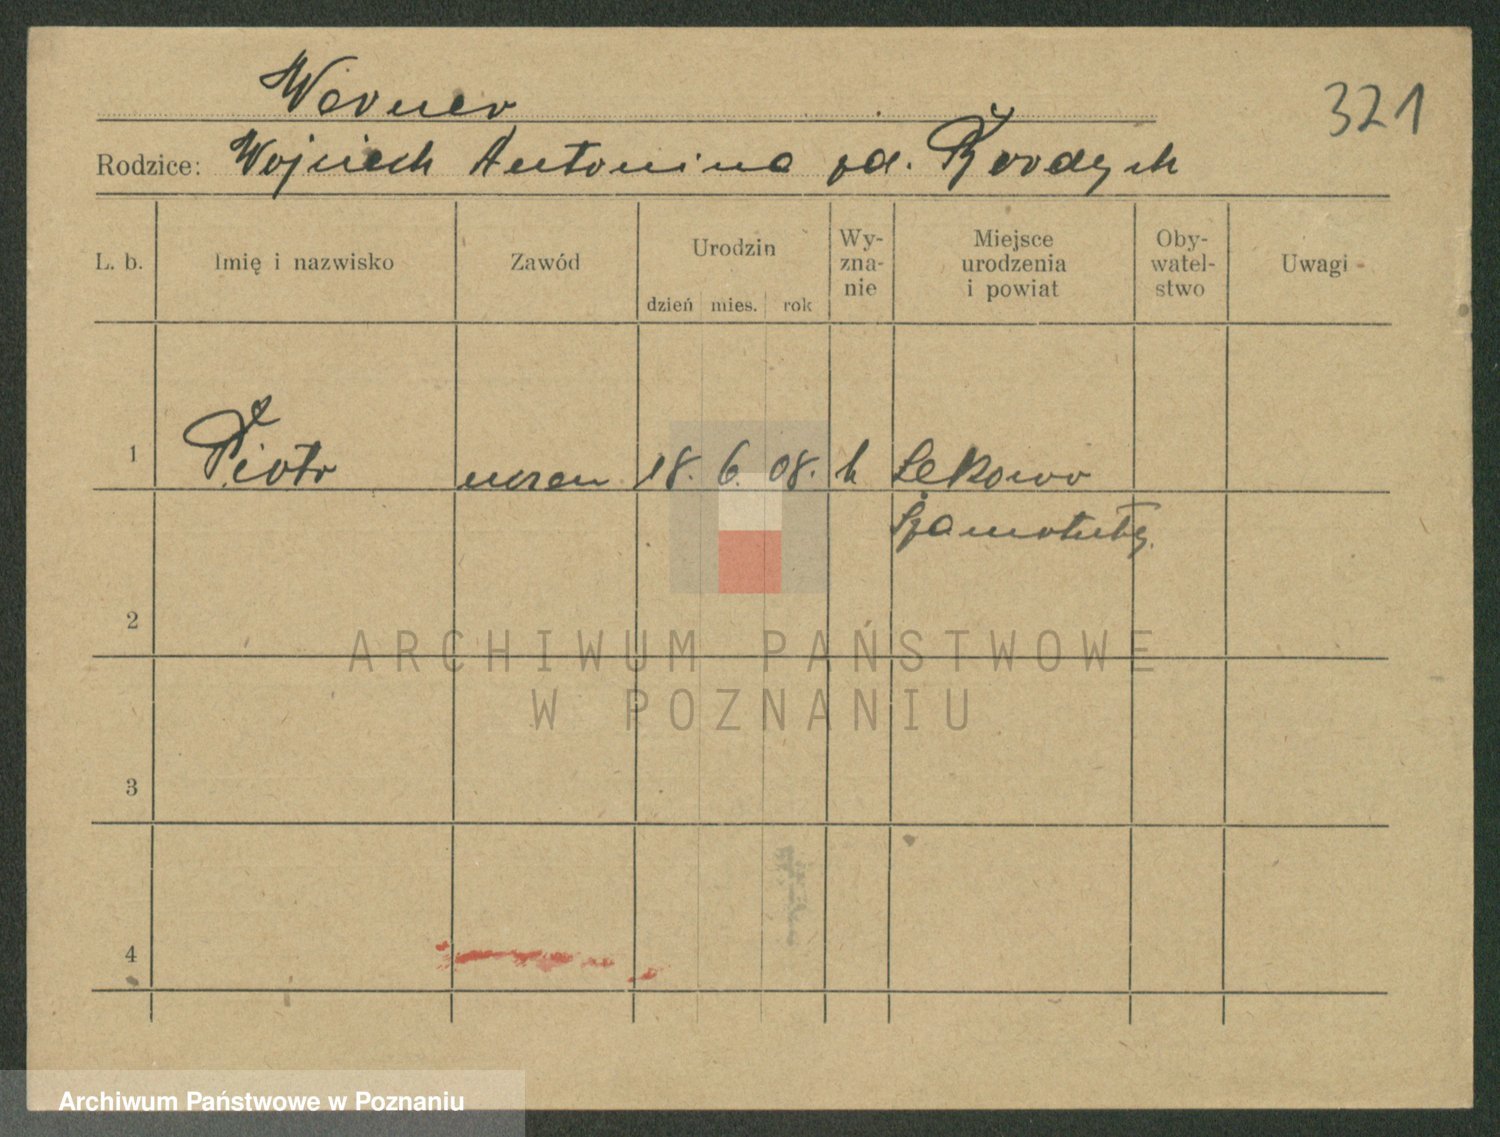 Werner
321
Rodzice: Wojciech Antonina
L. b. Imię i nazwisko Zawód Urodzin dzień mies. rok Wy-zna-nie Miejsce urodzenia i powiat Oby-watel-stwo Uwagi
1 Piotr uczeń 18. 6. 08. k Sękowo
Szamotuły.
2
ARCHIWUM PAŃSTWOWE
W POZNANIU
3
4
Archiwum Państwowe w Poznaniu